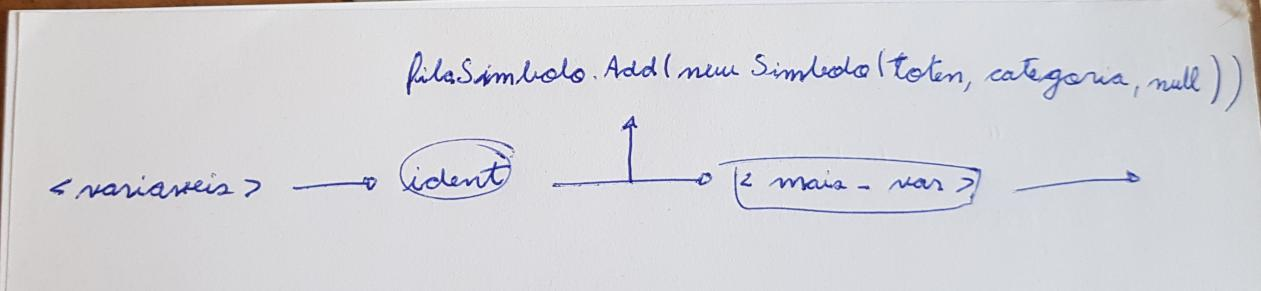 PilaSimbolo.Add(new Simbolo(token, categoria, null))
<variaveis> ident <mais-var>